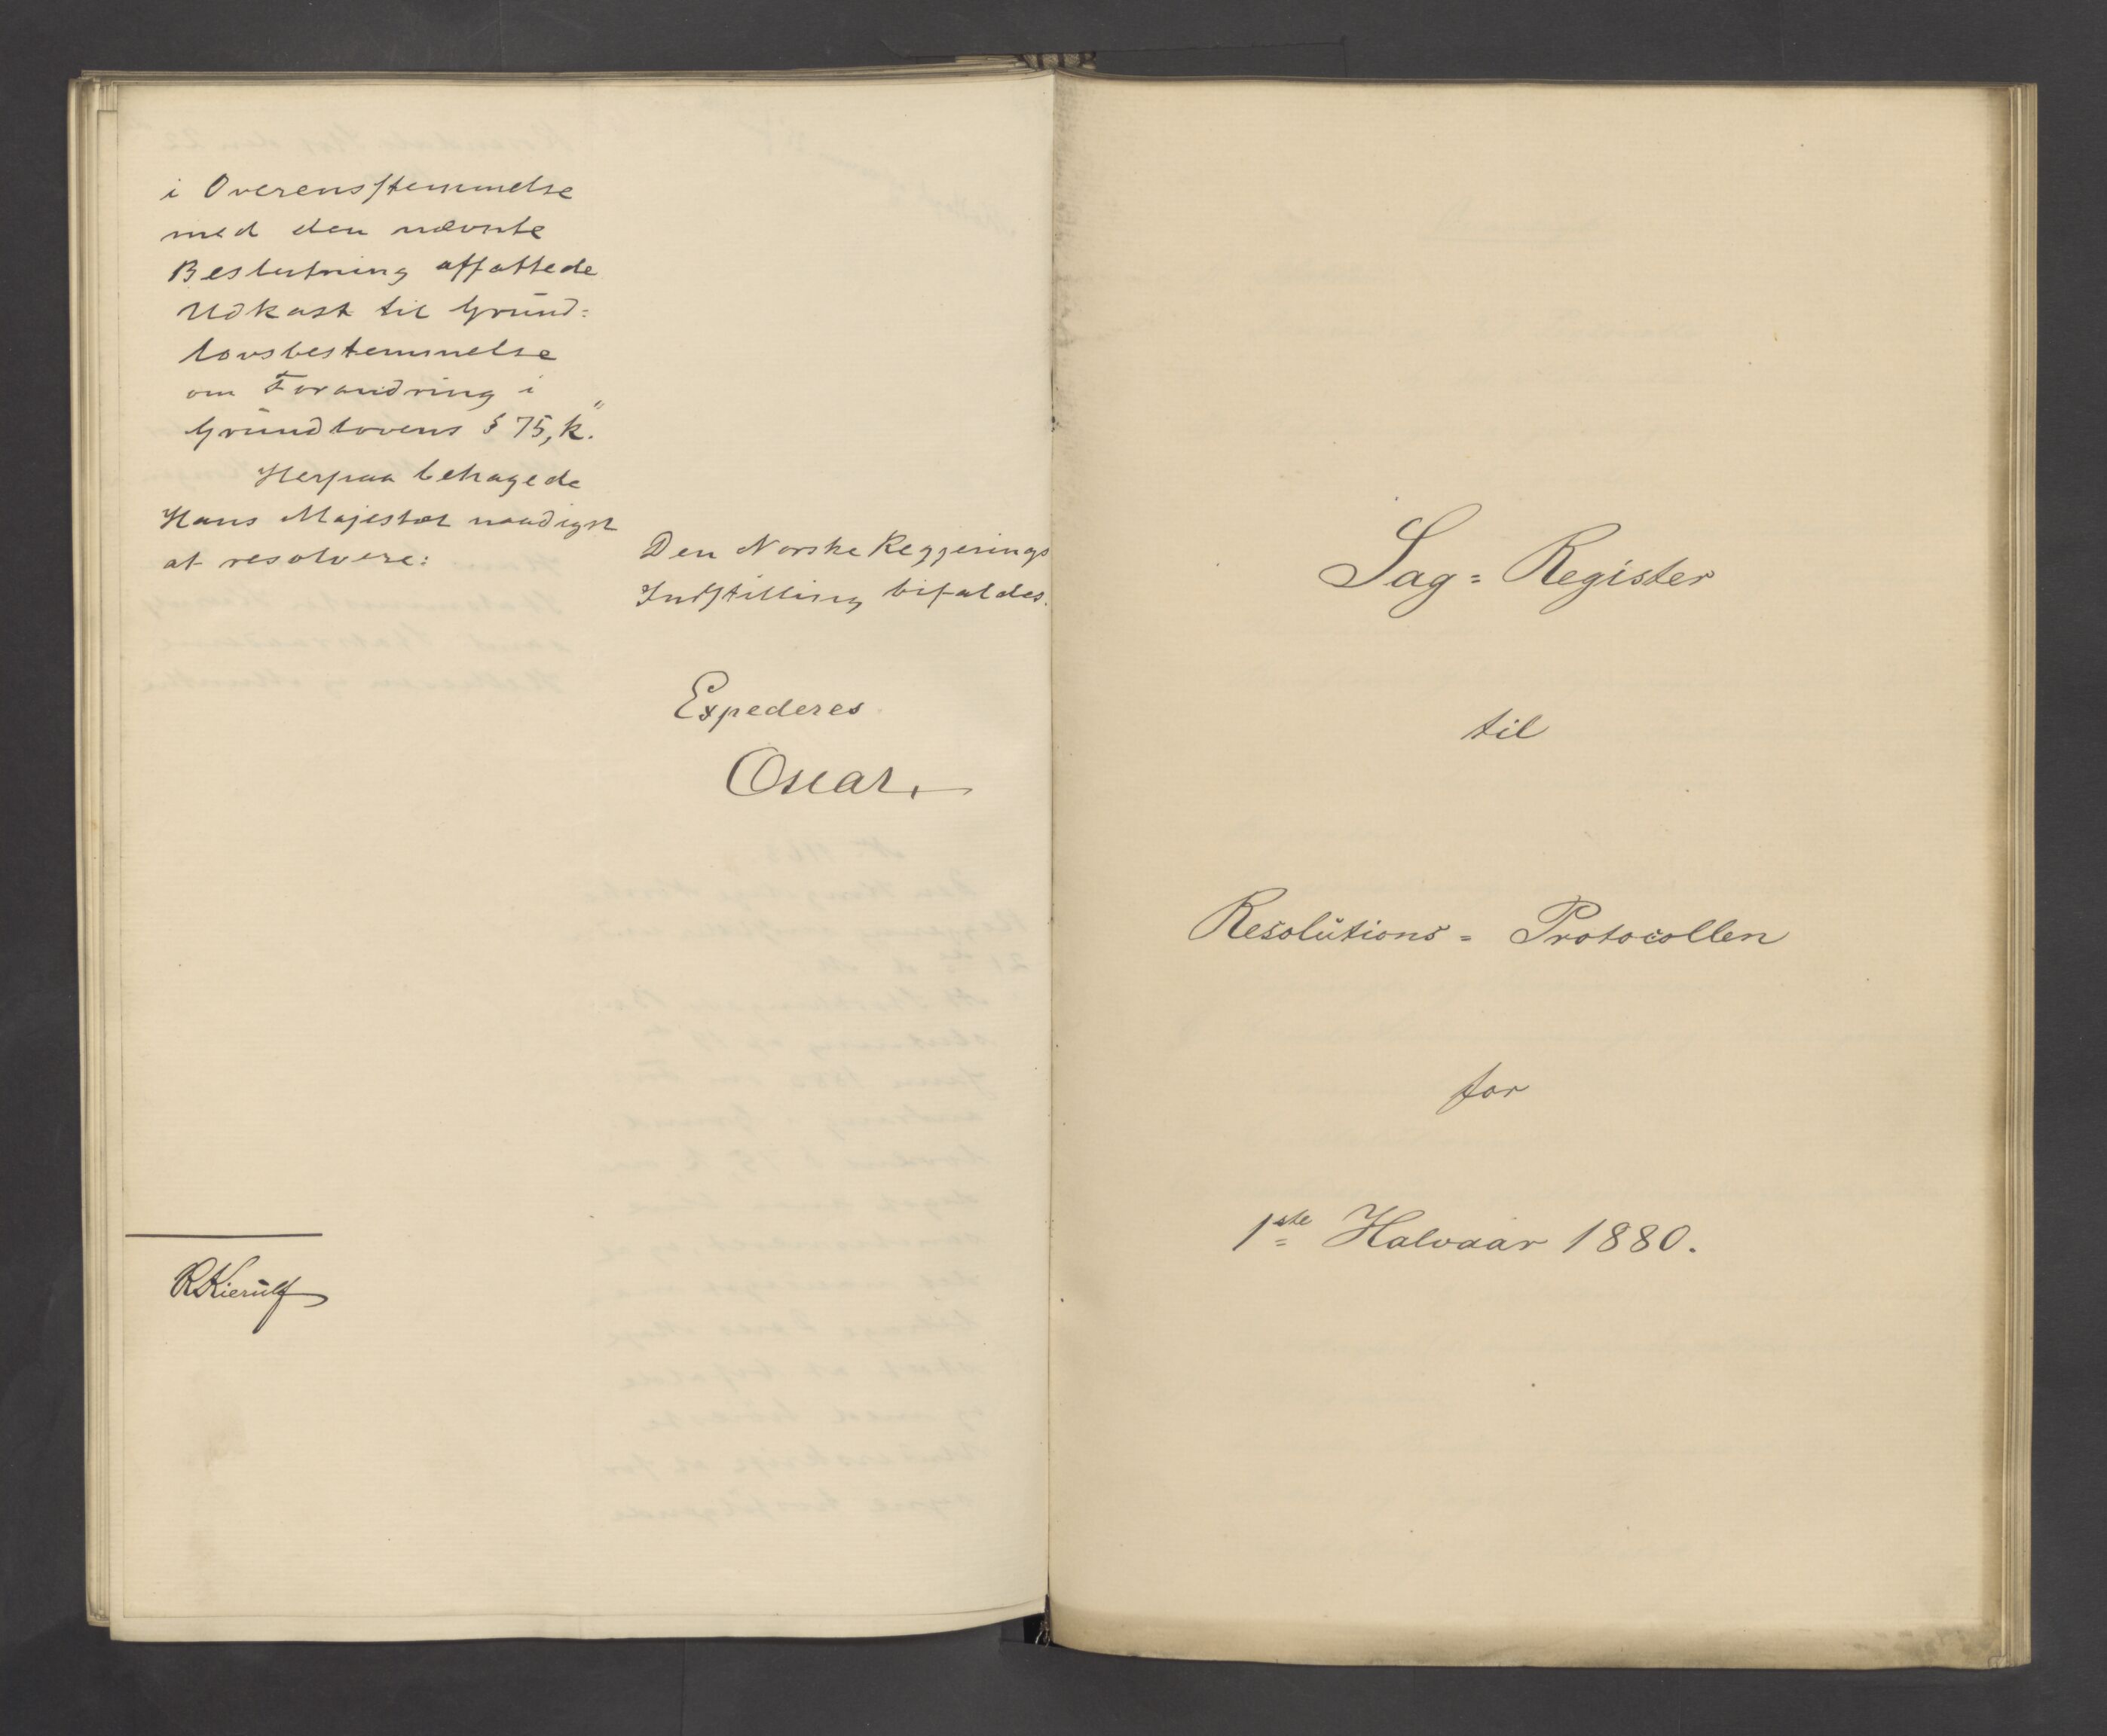 i Overensstemmelse
med den nævnte
Beslutning affattede
Udkast til Grund=
lovsbestemmelse
om Forandring i
Grundlovens § 75, k."
Herpaa behagede
Hans Majestæt naadigst
at resolvere:
Den Norske Regjerings
Indstilling bifaldes.
Expederes
Oscar.
RKierulf
Sag= Register
til
Resolutions= Protocollen
for
1ste Halvaar 1880.